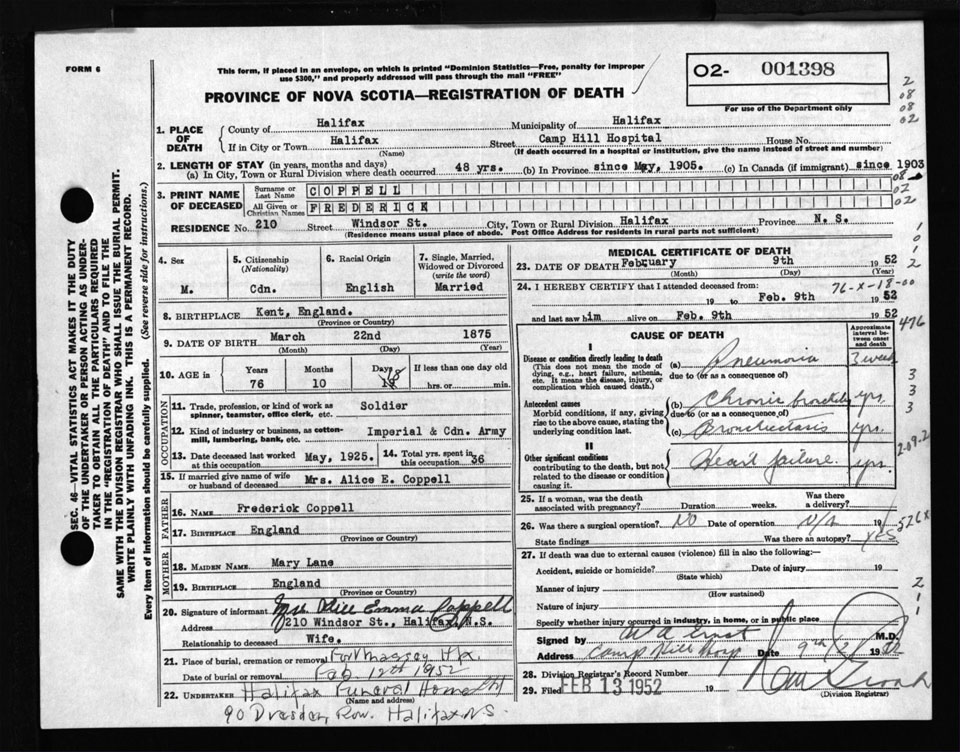 FORM 6
This form, if placed in an envelope, on which is printed "Dominion Statistics—Free, penalty for improper
use $300," and properly addressed will pass through the mail "FREE"
PROVINCE OF NOVA SCOTIA—REGISTRATION OF DEATH
02- 001398
For use of the Department only
2
08
08
02
1. PLACE OF DEATH { County of Halifax Municipality of Halifax
If in City or Town Halifax Street Camp Hill Hospital House No.
(Name) (If death occurred in a hospital or institution, give the name instead of street and number)
2. LENGTH OF STAY (in years, months and days)
(a) In City, Town or Rural Division where death occurred 48 yrs. (b) In Province since May, 1905. (c) In Canada (if immigrant) since 1903
3. PRINT NAME OF DECEASED { Surname or Last Name COPPELL
All Given or Christian Names FREDERICK
08
02
02
RESIDENCE No. 210 Street Windsor St. City, Town or Rural Division Halifax Province N. S.
(Residence means usual place of abode. Post Office Address for residents in rural parts not sufficient)
4. Sex
M.
5. Citizenship
(Nationality)
Cdn.
6. Racial Origin
English
7. Single, Married,
Widowed or Divorced
(write the word)
Married
8. BIRTHPLACE Kent, England.
(Province or Country)
9. DATE OF BIRTH March 22nd 1875
(Month) (Day) (Year)
10. AGE in { Years Months Days If less than one day old
76 10 18 hrs. or min.
OCCUPATION
11. Trade, profession, or kind of work as Soldier
spinner, teamster, office clerk, etc.
12. Kind of industry or business, as cotten- Imperial & Cdn. Army
mill, lumbering, bank, etc.
13. Date deceased last worked at this occupation May, 1925. 14. Total yrs. spent in this occupation 36
15. If married give name of wife or husband of deceased Mrs. Alice E. Coppell
FATHER
16. NAME Frederick Coppell
17. BIRTHPLACE England
(Province or Country)
MOTHER
18. MAIDEN NAME Mary Lane
19. BIRTHPLACE England
(Province or Country)
20. Signature of informant Mrs. Alice Emma Coppell
Address 210 Windsor St., Halifax, N.S.
Relationship to deceased Wife.
21. Place of burial, cremation or removal Fort Massey Hfx.
Date of burial or removal Feb. 12th 1952
22. UNDERTAKER Halifax Funeral Home Ltd
(Name and address)
90 Dresden Row. Halifax N.S.
MEDICAL CERTIFICATE OF DEATH
23. DATE OF DEATH February 9th 1952
(Month) (Day) (Year)
24. I HEREBY CERTIFY that I attended deceased from: 76-X-18-00
19 to Feb. 9th 1952
and last saw him alive on Feb. 9th 1952
CAUSE OF DEATH
Approximate interval between onset and death
I
Disease or condition directly leading to death (a) Pneumonia 3 weeks
(This does not mean the mode of dying, e.g., heart failure, asthenia, etc. It means the disease, injury, or complication which caused death.)
due to (or as a consequence of)
Antecedent causes (b) Chronic bronchitis yrs.
Morbid conditions, if any, giving rise to the above cause, stating the underlying condition last.
due to (or as a consequence of)
(c) Bronchiectasis yrs.
II
Other significant conditions Heart failure. yrs.
contributing to the death, but not related to the disease or condition causing it.
1
0
1
2
476
3
3
3
209.2
526X
2
1
1
25. If a woman, was the death associated with pregnancy? Duration weeks. Was there a delivery?
26. Was there surgical operation? NO Date of operation N/A 19
State findings Was there an autopsy? YES
27. If death was due to external causes (violence) fill in also the following:—
Accident, suicide or homicide? Date of injury 19
(State which)
Manner of injury
(How sustained)
Nature of injury
Specify whether injury occurred in industry, in home, or in public place
Signed by W A Ernst M.D.
Address Camp Hill Hosp Date 9th 2 1952
28. Division Registrar's Record Number
29. Filed FEB 13 1952 19
(Division Registrar)
SEC. 46—VITAL STATISTICS ACT MAKES IT THE DUTY
OF THE UNDERTAKER OR PERSON ACTING AS UNDER-
TAKER TO OBTAIN ALL THE PARTICULARS REQUIRED
IN THE "REGISTRATION OF DEATH" AND TO FILE THE
SAME WITH THE DIVISION REGISTRAR WHO SHALL ISSUE THE BURIAL PERMIT.
WRITE PLAINLY WITH UNFADING INK. THIS IS A PERMANENT RECORD.
Every item of information should be carefully supplied. (See reverse side for instructions.)